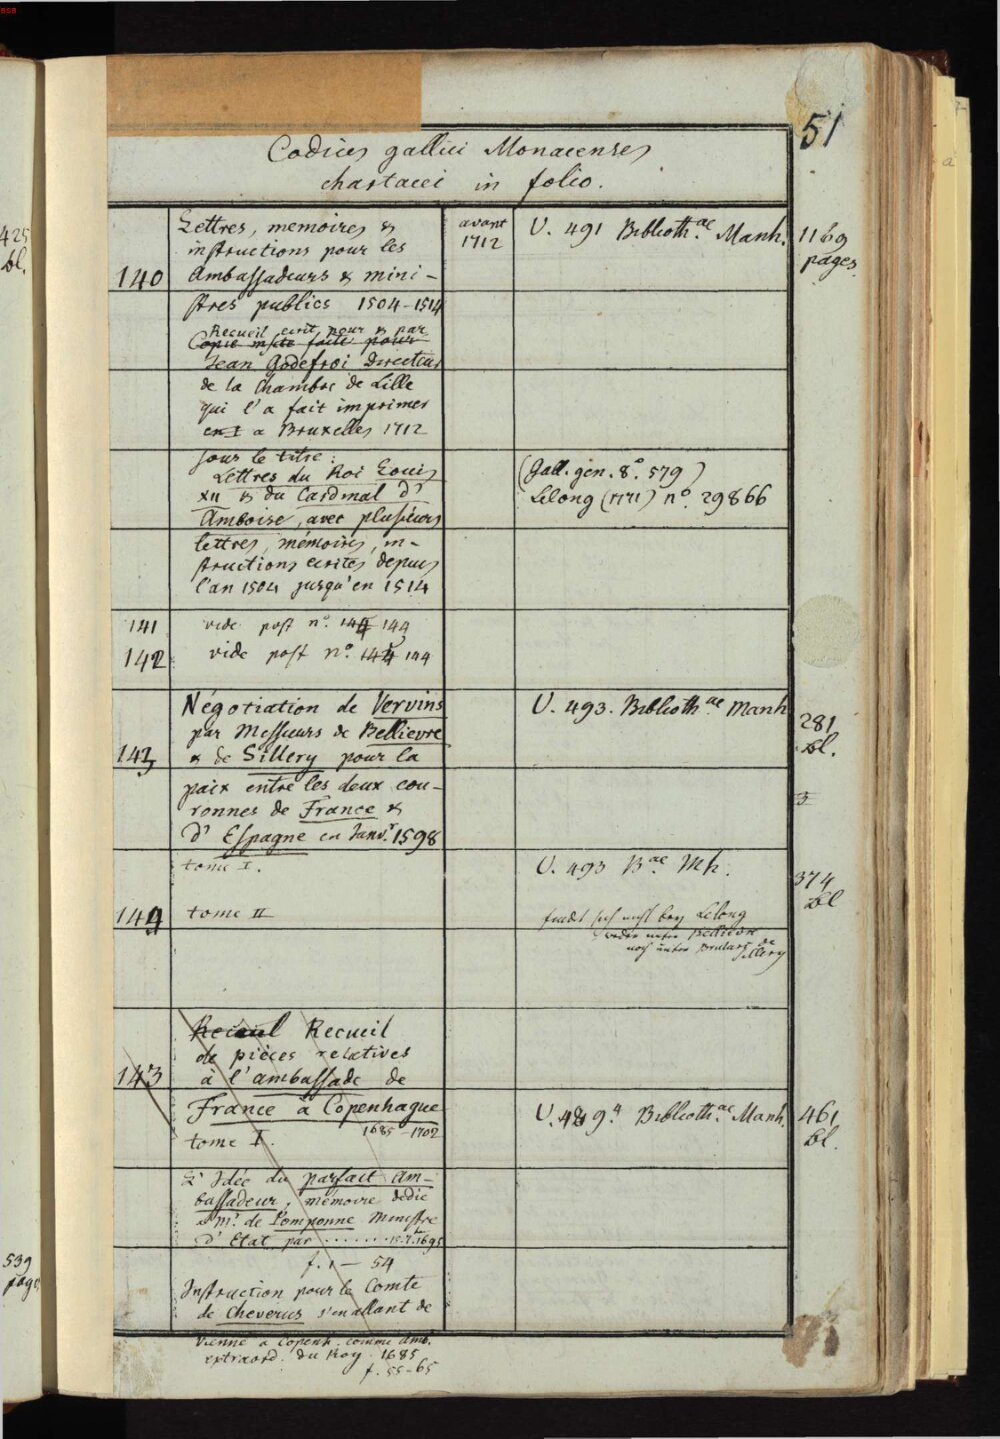 51
Codices gallici Monacenses
chartacei in folio.
425
bl.
140
Lettres, memoires &
instructions pour les
Ambassadeurs & mini-
stres publics 1504-1514
Recueil ecrit pour & par
Copie mste faite pour
Jean Godefroi Directeur
de la Chambre de Lille
qui l'a fait imprimer
a Bruxelles 1712
sous le titre:
Lettres du Roi Louis
XII & du Cardinal d'
Amboise, avec plusieurs
lettres, mémoires, in-
structions ecrites depuis
l'an 1504 jusqu'en 1514
avant
1712
U. 491 Biblioth.ae Manh.
1169
pages
(Gall. gen. 8o. 579)
Lelong (1771) no. 29866
141 vide post no. 144 144
142 vide post no. 144 144
143
Négotiation de Vervins
par Messieurs de Bellievre
& de Sillery pour la
paix entre les deux cou-
ronnes de France &
d'Espagne en Janv.r 1598
tome I.
U. 493. Biblioth.ae Manh
281
bl.
144 tome II
U. 493 B.ae Mh.
374
bl
findet sich nicht bey Lelong
weder unter Bellievre
noch unter Brulart de
Sillery
143
Recueil Recueil
de pièces relatives
à l'ambassade de
France à Copenhague
1685-1702
tome I.
U. 489.a Biblioth.ae Manh.
461
bl.
L'Idée du parfait Am-
bassadeur, mémoire dedié
a Mr. de Pomponne Ministre
d'Etat par ....... 1695
f. 1 — 54
Instruction pour le Comte
de Cheverus s'en allant de
Vienne a Copenh. comme Amb.
extraord. du Roy. 1685
f. 55-65
539
pages